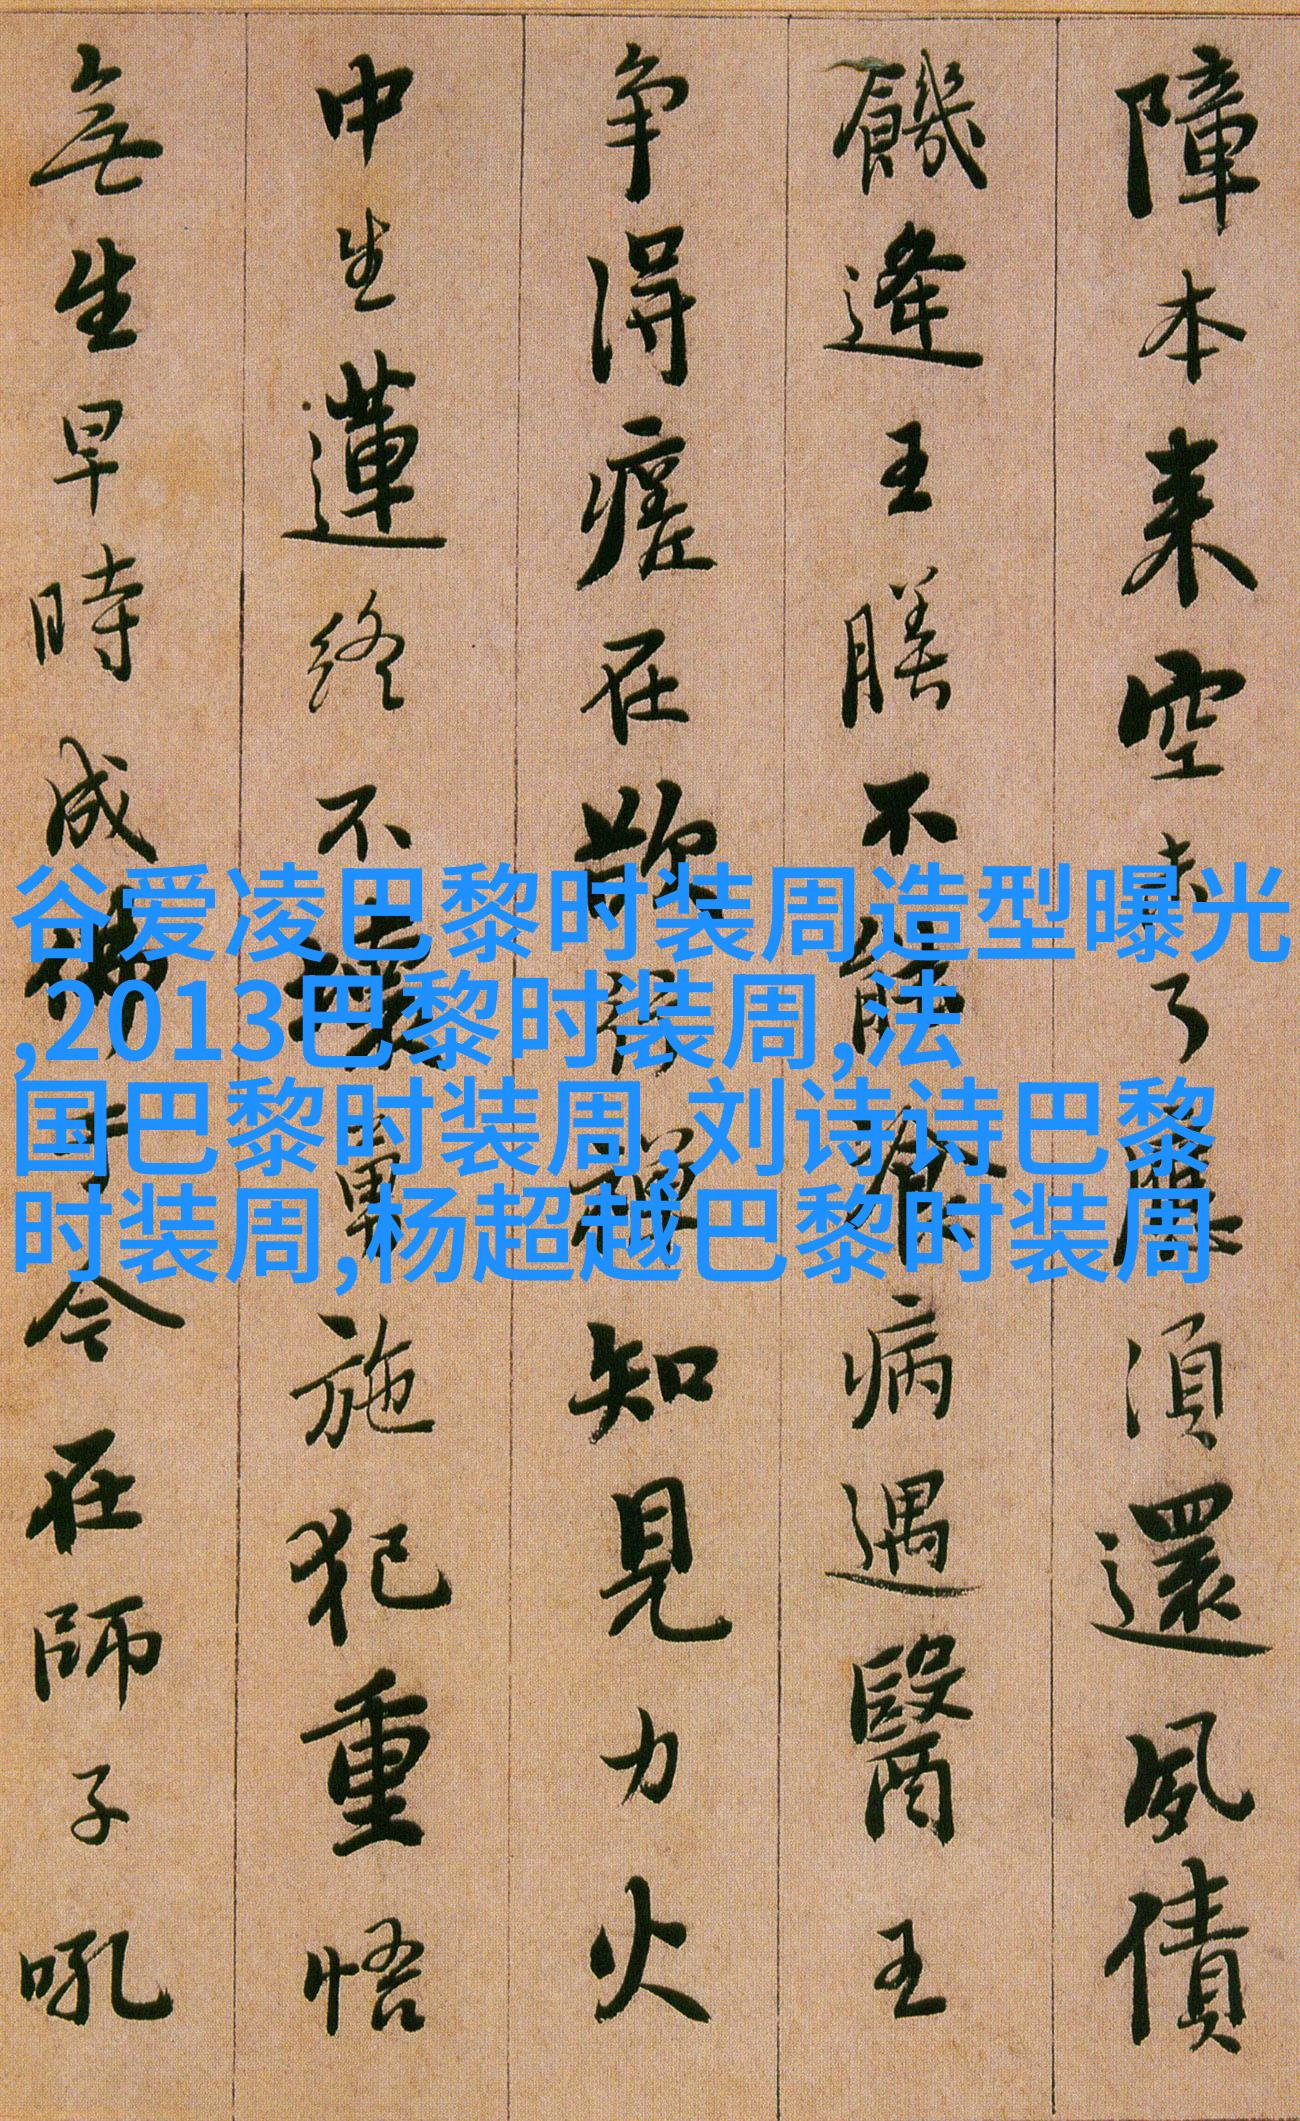 障本来空未了應須還夙債
饑逢王膳不能餐病遇醫王
争得瘥在欲行禪知見力火
中生蓮終不壞勇施犯重悟
無生早時成佛于今在師子吼
谷爱凌巴黎时装周造型曝光
,2013巴黎时装周,法
国巴黎时装周,刘诗诗巴黎
时装周,杨超越巴黎时装周